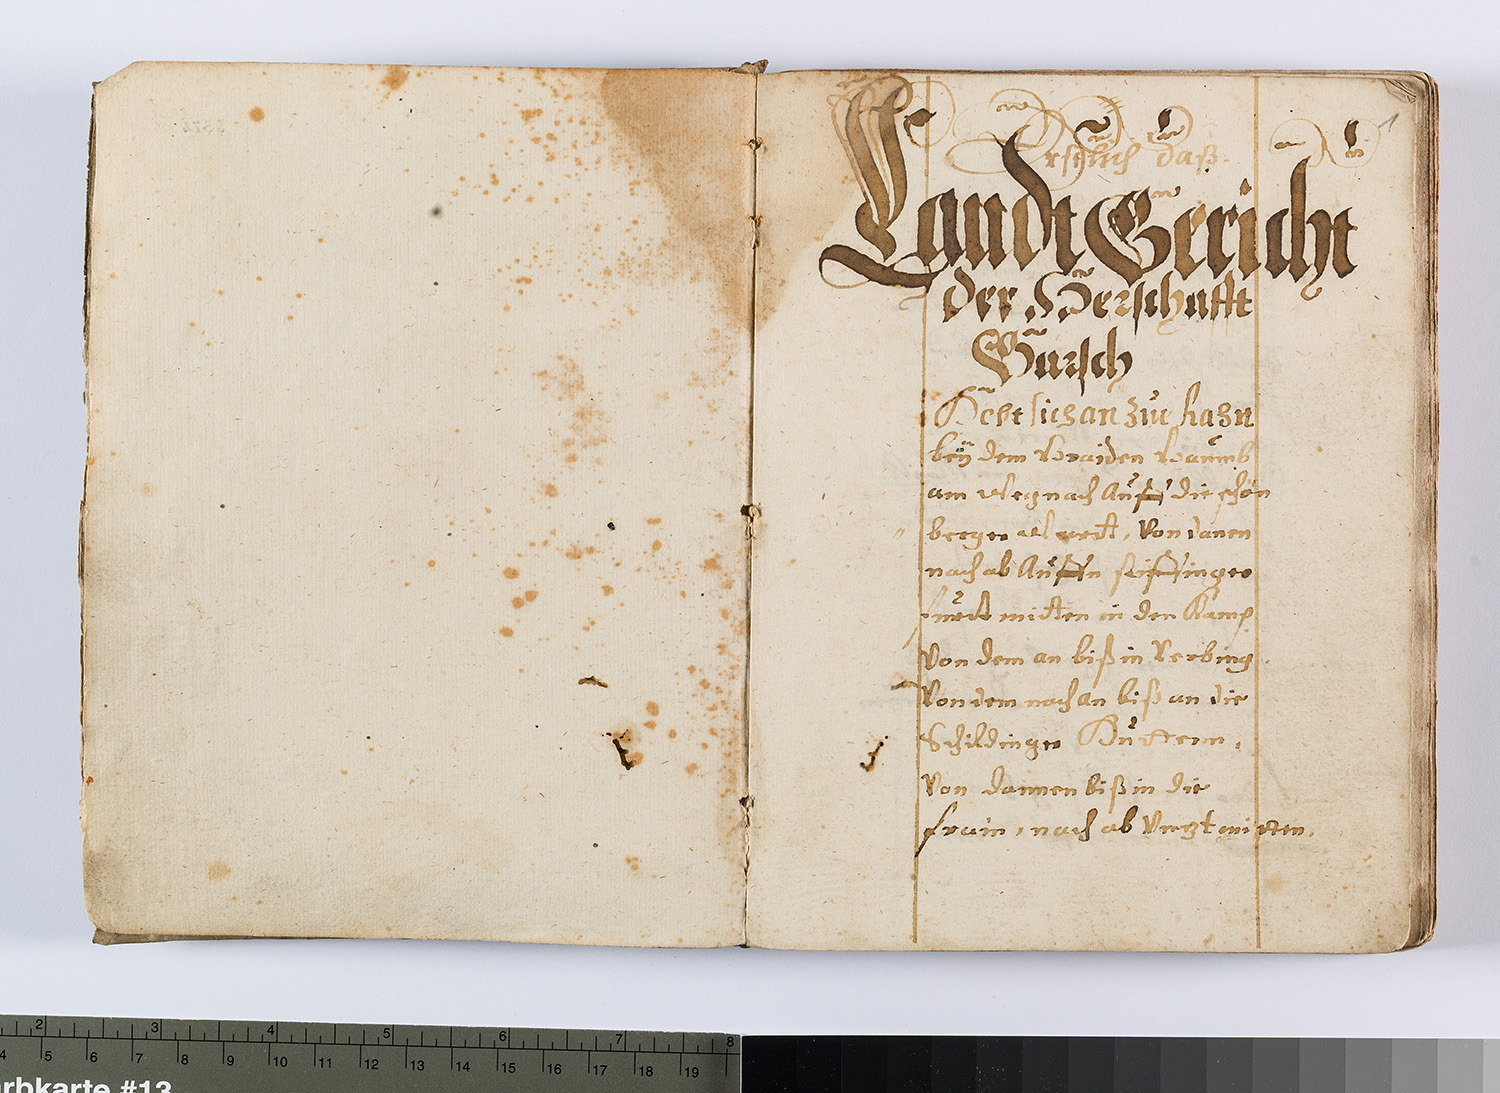 1
Erstlich daß
Landt Gericht
der Herschafft
Gärsch
Hebt sich an zu Hazn
beÿ dem Braiden Baumb
am Weeg nach Auff die schön
berger Wardt, Von danen
nach ab Auffn seiffinger
furdt mitten in den Kamp
Von dem an biß in Rerbing
Von dem nach an biß an die
Schildinger Hutterrn,
Von dannen biß in die
frain, nach ab Vnezt mitten,
2 3 4 5 6 7 8
4 5 6 7 8 9 10 11 12 13 14 15 16 17 18 19
rbkarte #13